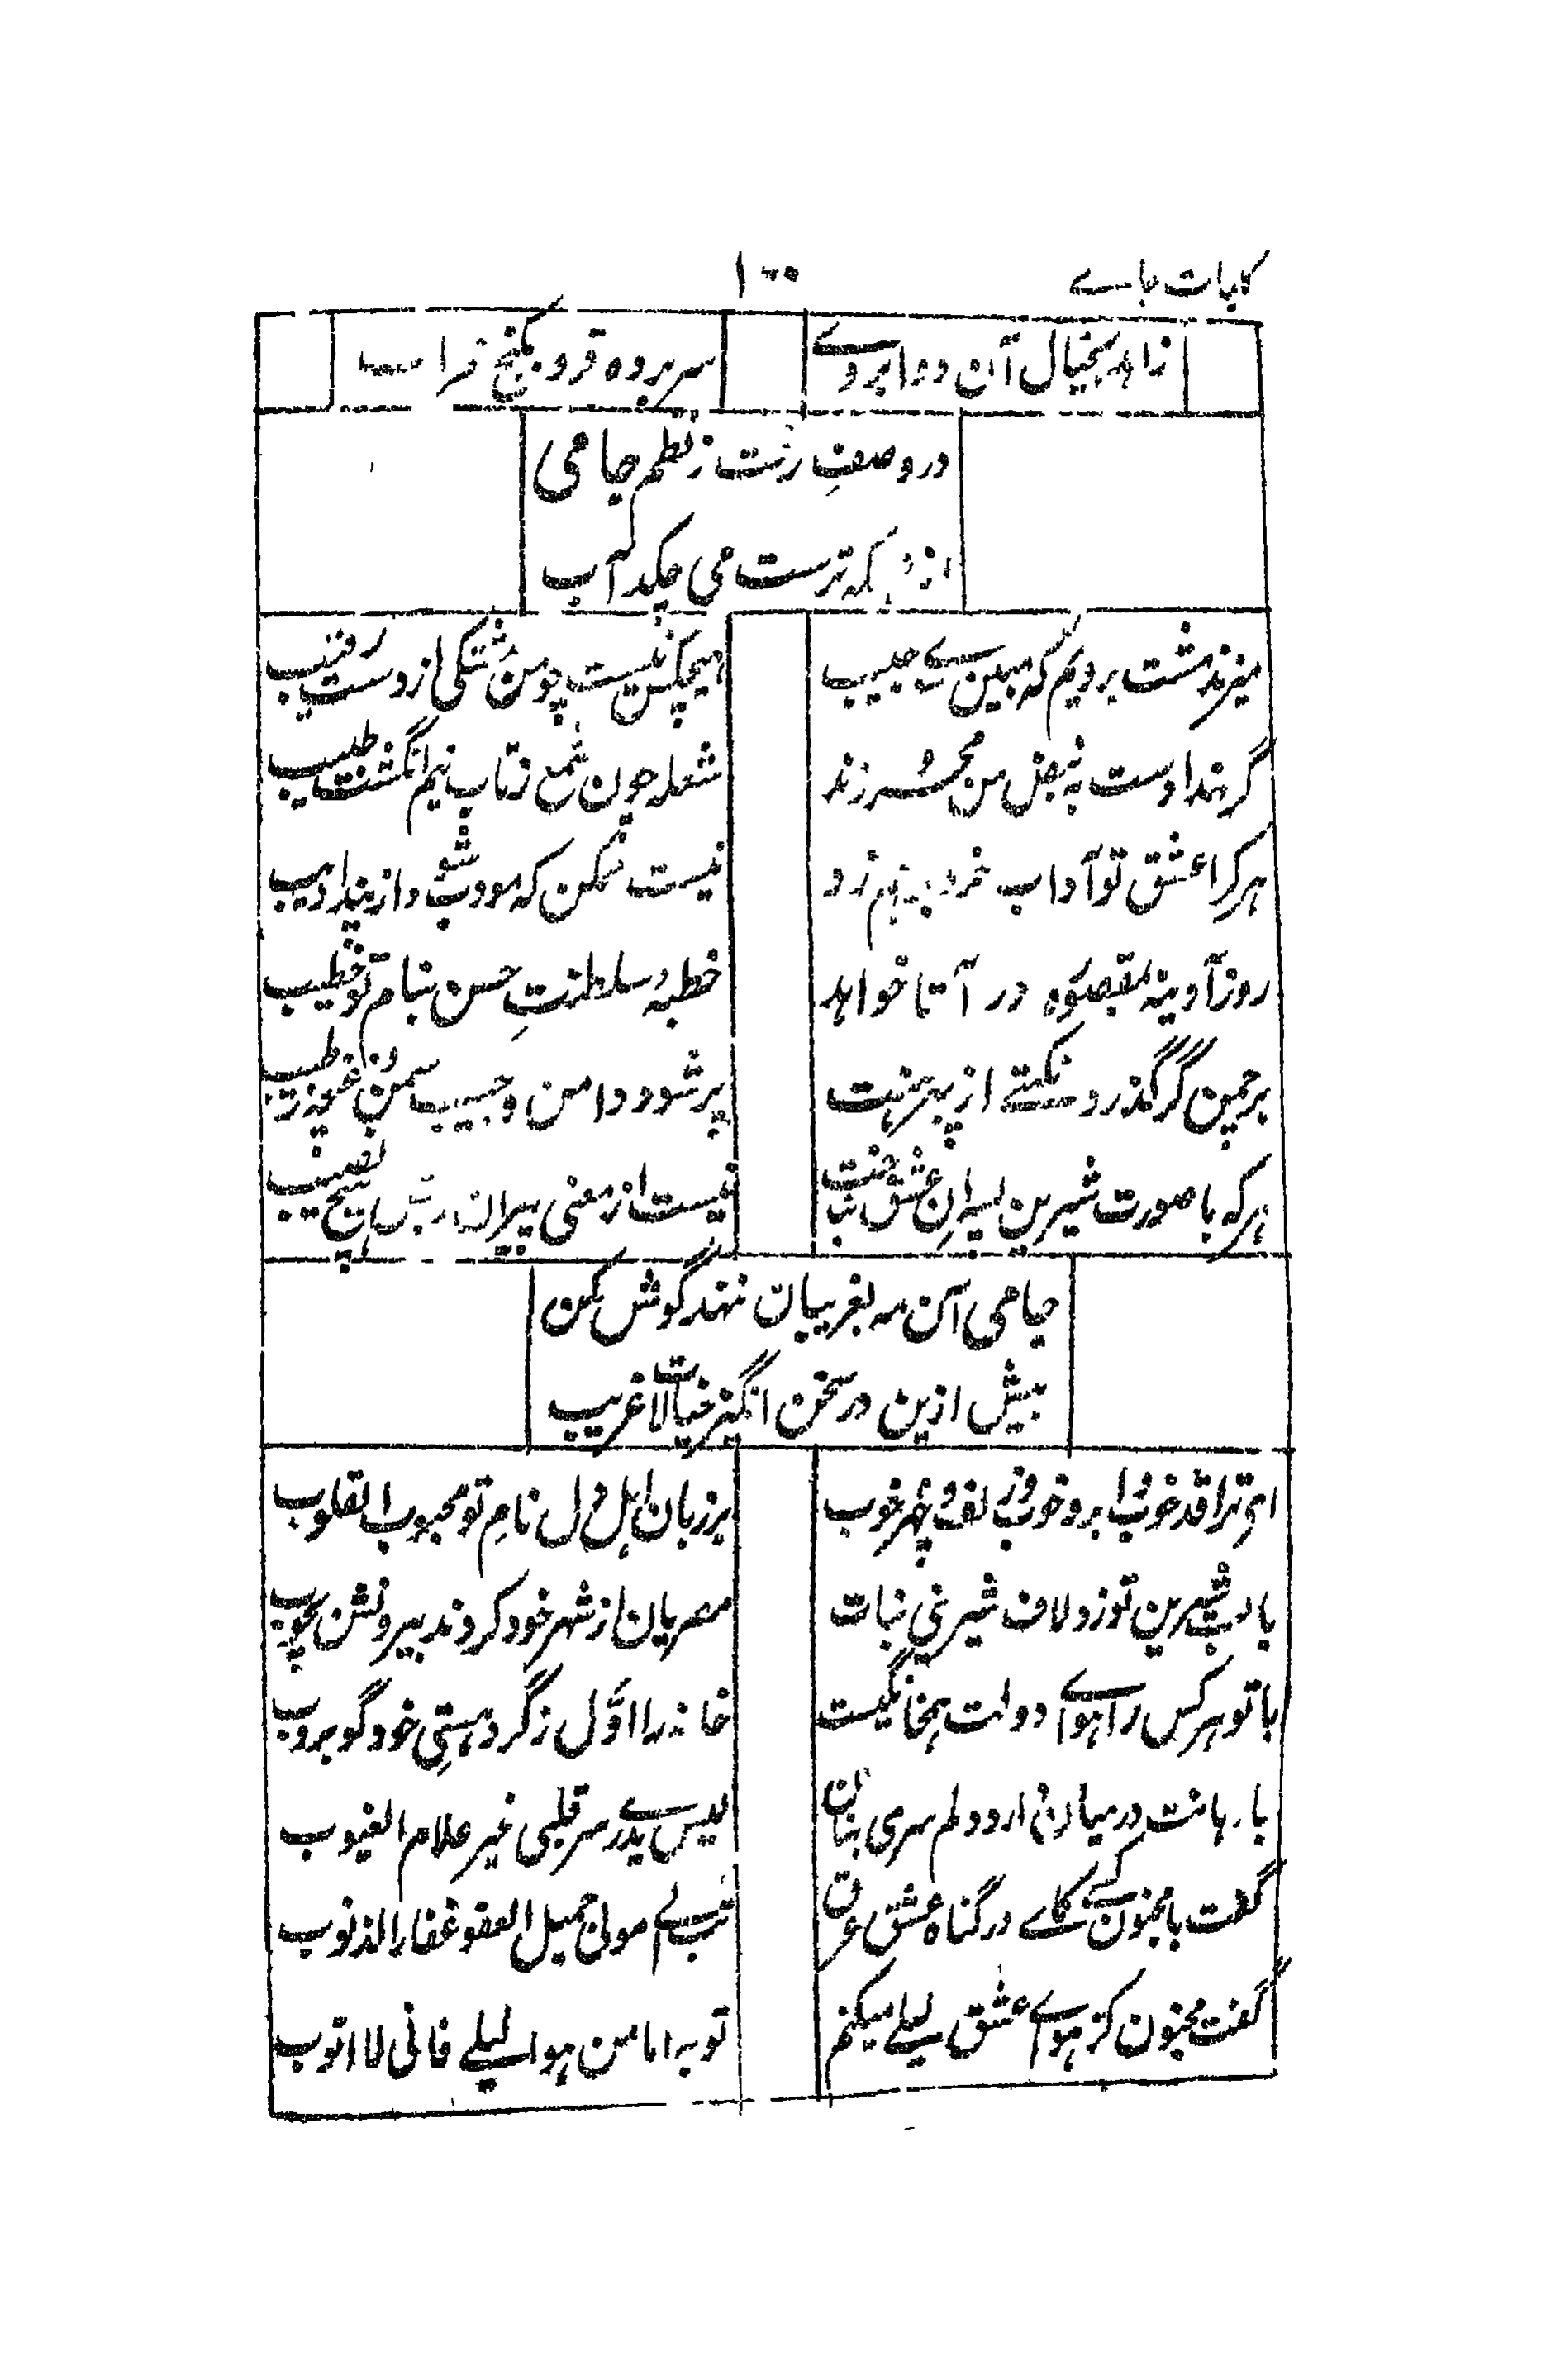 کلیات جامے
۱۰۰
زاہد بخیال آن دو ابروے
سر بردہ فرو بکنج محراب
در وصفِ رخت ز نظم جامی
کہ ترست می چکد آب
میزند مشت برویم کہ مبین سوے حبیب
ہیچکس نیست چو من مشتکی از دست رقیب
گر نہد دست بہ نبض من محرور زند
شعلہ چون شمع زتاب تنم انگشت طبیب
ہر کرا عشق تو آداب خرد برہم زد
نیست ممکن کہ مودب شود از پند ادیب
روز آدینہ بمقصورہ در آ تا خواہد
خطبۂ سلطنتِ حسن بنام تو خطیب
بر چمن گر گذرد نکہتے از پیرہنت
پر شود دامن و جیب سمن و غنچہ ز طیب
ہر کہ با صورت شیرین پسران عشق نباخت
نیست از معنی پیران ہیچ نصیب
جامی آن مہ بغریبان ننہد گوش مکن
بیش ازین در سخن انگیز خیالات غریب
ای ترا قد خوب و ابرو خوب و زلف و چہر خوب
بر زبان اہل دل نامِ تو محبوب القلوب
با لب شیرین تو زد لاف شیرینی نبات
مصریان از شہر خود کردند بیرونش بچوب
با تو ہر کس را ہواے دولت ہمخانگیست
خانہ را اوّل ز گرد ہستیِ خود گو بروب
با دہانت در میان دارد دلم سری نہان
لیس یدری سر قلبی غیر علام الغیوب
گفت با مجنون کسے کاے در گناہ عشق غرق
تب لے مولی جمیل العفو غفار الذنوب
گفت مجنون کز ہواے عشق لیلے میکنم
توبہ اما من ہواے لیلے فانی لا اتوب